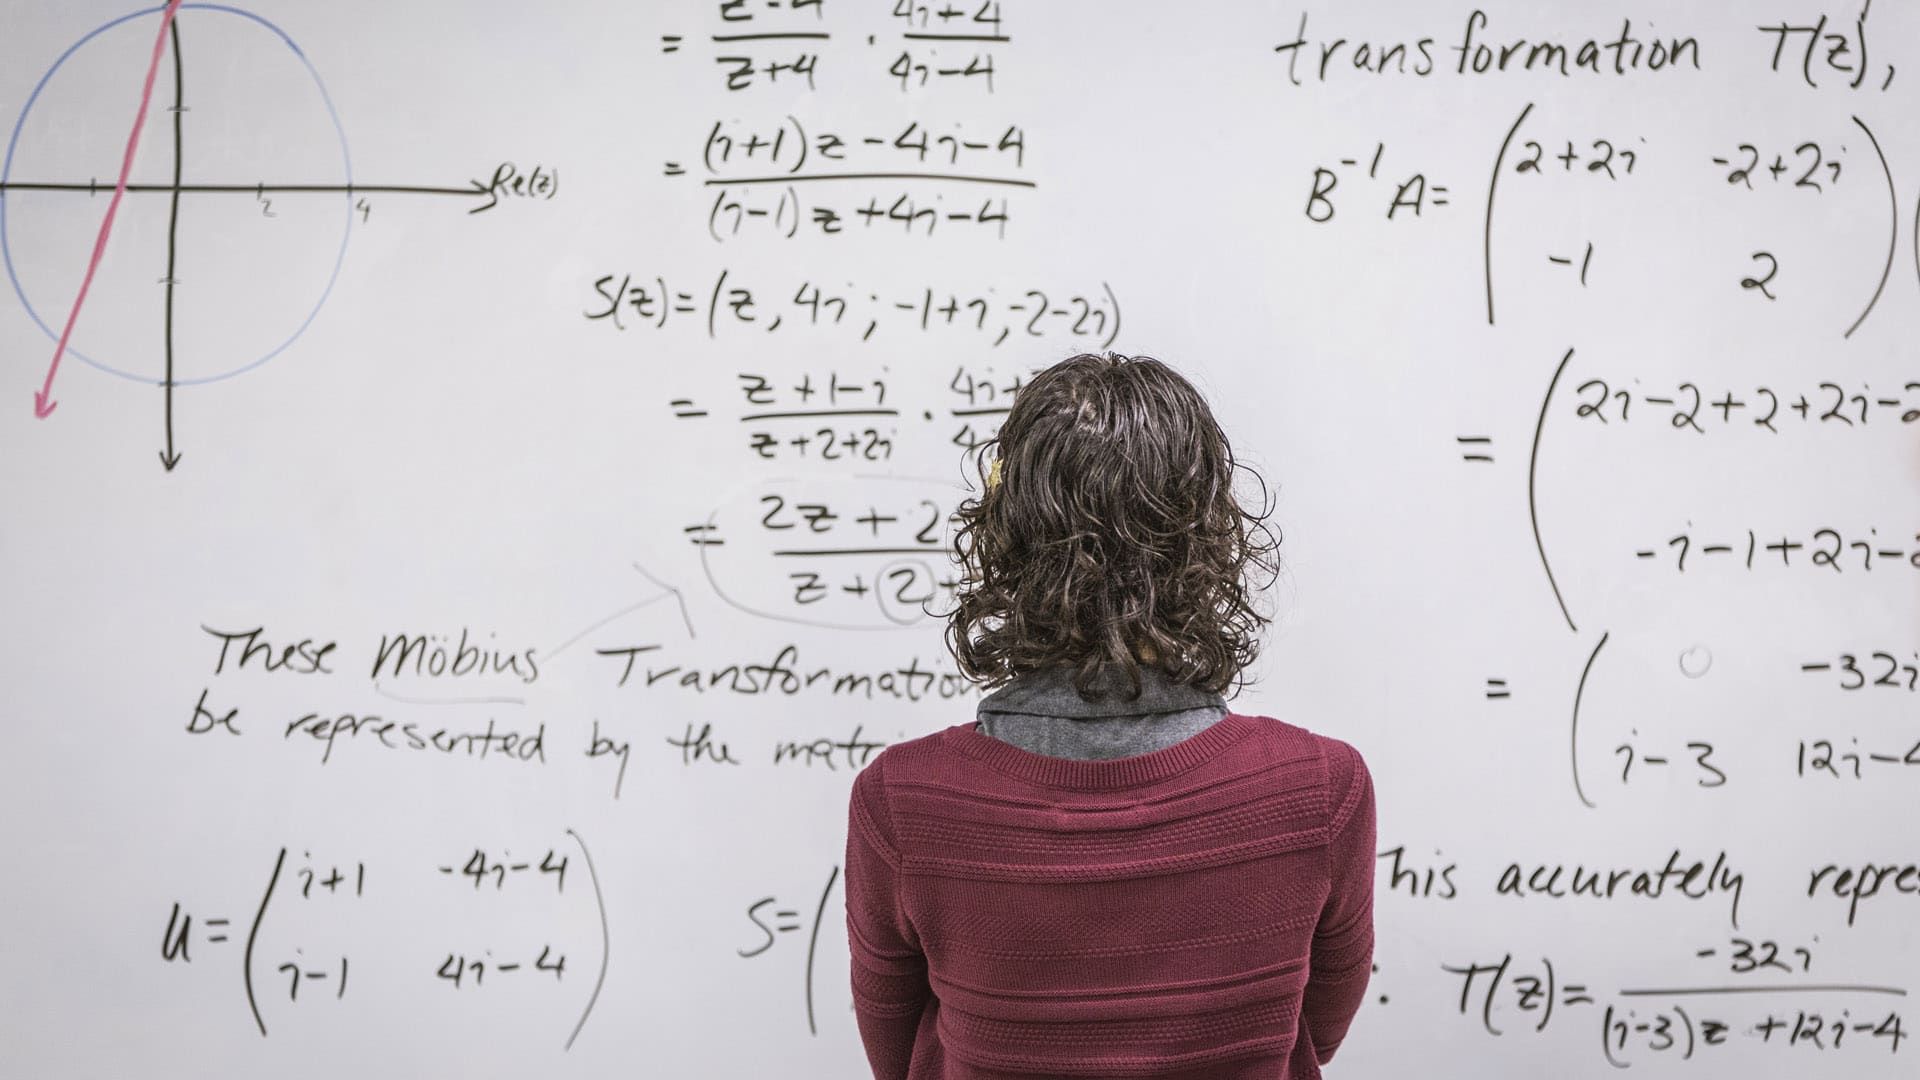 Re(z)
2 4
= z-4/z+4 · 4i+4/4i-4
= (i+1)z-4i-4/(i-1)z+4i-4
S(z)=(z, 4i; -1+i, -2-2i)
= z+1-i/z+2+2i · 4i+
= 2z+2/z+2+
These Möbius Transformation
be represented by the matri
u= (i+1 -4i-4
i-1 4i-4)
S= (
transformation T(z),
B⁻¹A= (2+2i -2+2i
-1 2)
= (2i-2+2+2i-2
-i-1+2i-2
= (0 -32i
i-3 12i-4
This accurately repre
: T(z)= -32i/(i-3)z+12i-4